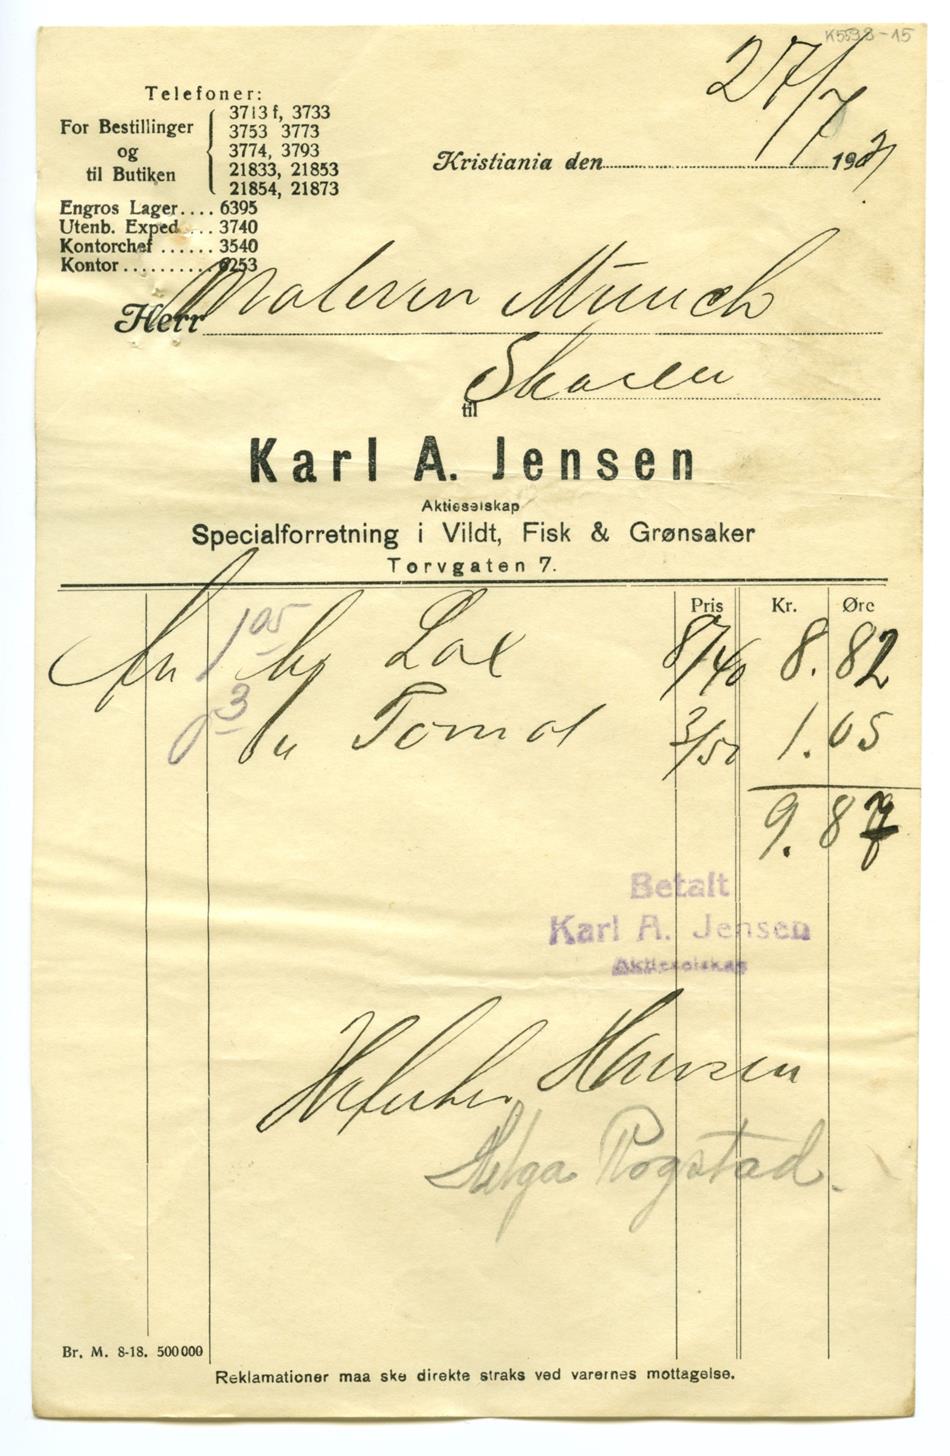 K5598-15
27/7
Telefoner:
For Bestillinger og til Butiken
3713 f, 3733
3753 3773
3774, 3793
21833, 21853
21854, 21873
Kristiania den 192
Engros Lager.... 6395
Utenb. Exped ... 3740
Kontorchef ...... 3540
Kontor.......... 6253
Herr Maleren Munch
Skøien
til
Karl A. Jensen
Aktieselskap
Specialforretning i Vildt, Fisk & Grønsaker
Torvgaten 7.
Pris Kr. Øre
An 1 05 kg Lax 8/40 8.82
0 3 " Tomat 3/50 1.05
9.87
Betalt
Karl A. Jensen
Aktieselskap
Hansen
Helga Rogstad.
Br. M. 8-18. 500000
Reklamationer maa ske direkte straks ved varernes mottagelse.